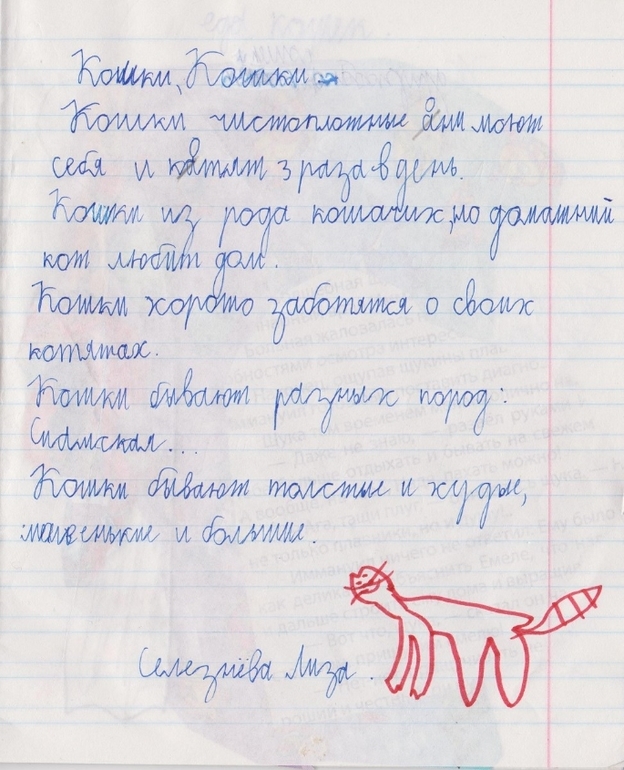 Кошки, Кошки
Кошки чистоплотные они моют
себя и котят 3 раза в день.
Кошки из рода кошачих, но домашний
кот любит дом.
Кошки хорошо заботятся о своих
котятах.
Кошки бывают разных пород:
Сиамская...
Кошки бывают толстые и худые,
маленькие и большие.
Селезнёва Лиза.